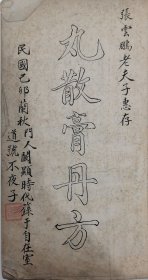 張雲鵬老夫子惠存
丸散膏丹方
民國己卯蘭秋門人關顯時代錄于自在室
道號不夜子